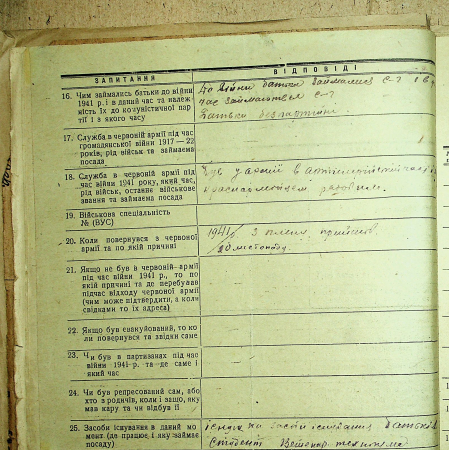 ЗАПИТАННЯ
ВІДПОВІДІ
16. Чим займались батьки до війни
1941 р. і в даний час та належ-
ність їх до комуністичної пар-
тії і з якого часу
До війни батьки займалися с-г і в
час займаються с-г
Батьки безпартійні
17. Служба в червоній армії під час
громадянської війни 1917—22
років, рід військ та займаєма
посада
18. Служба в червоній армії під
час війни 1941 року, який час,
рід військ, останнє військове
звання та займаєма посада
Був у армії в артилерійській
красноармейцем рядовим.
19. Військова спеціальність
№ (ВУС)
20. Коли повернувся з червоної
армії та по якій причині
1941 з плену прийшов
листопада.
21. Якщо не був в червоній армії
під час війни 1941 р., то по
якій причині та де перебував
підчас відходу червоної армії
(чим може підтвердити, а коли
свідками то їх адреса)
22. Якщо був евакуйований, то ко-
ли повернувся та звідки саме
23. Чи був в партизанах під час
війни 1941 р. та де саме і
який час
24. Чи був репресований сам, або
хто з родичів, коли і защо, яку
мав кару та чи відбув її
25. Засоби існування в даний мо-
мент (де працює і яку займає
посаду)
існування батьків
студент технікума